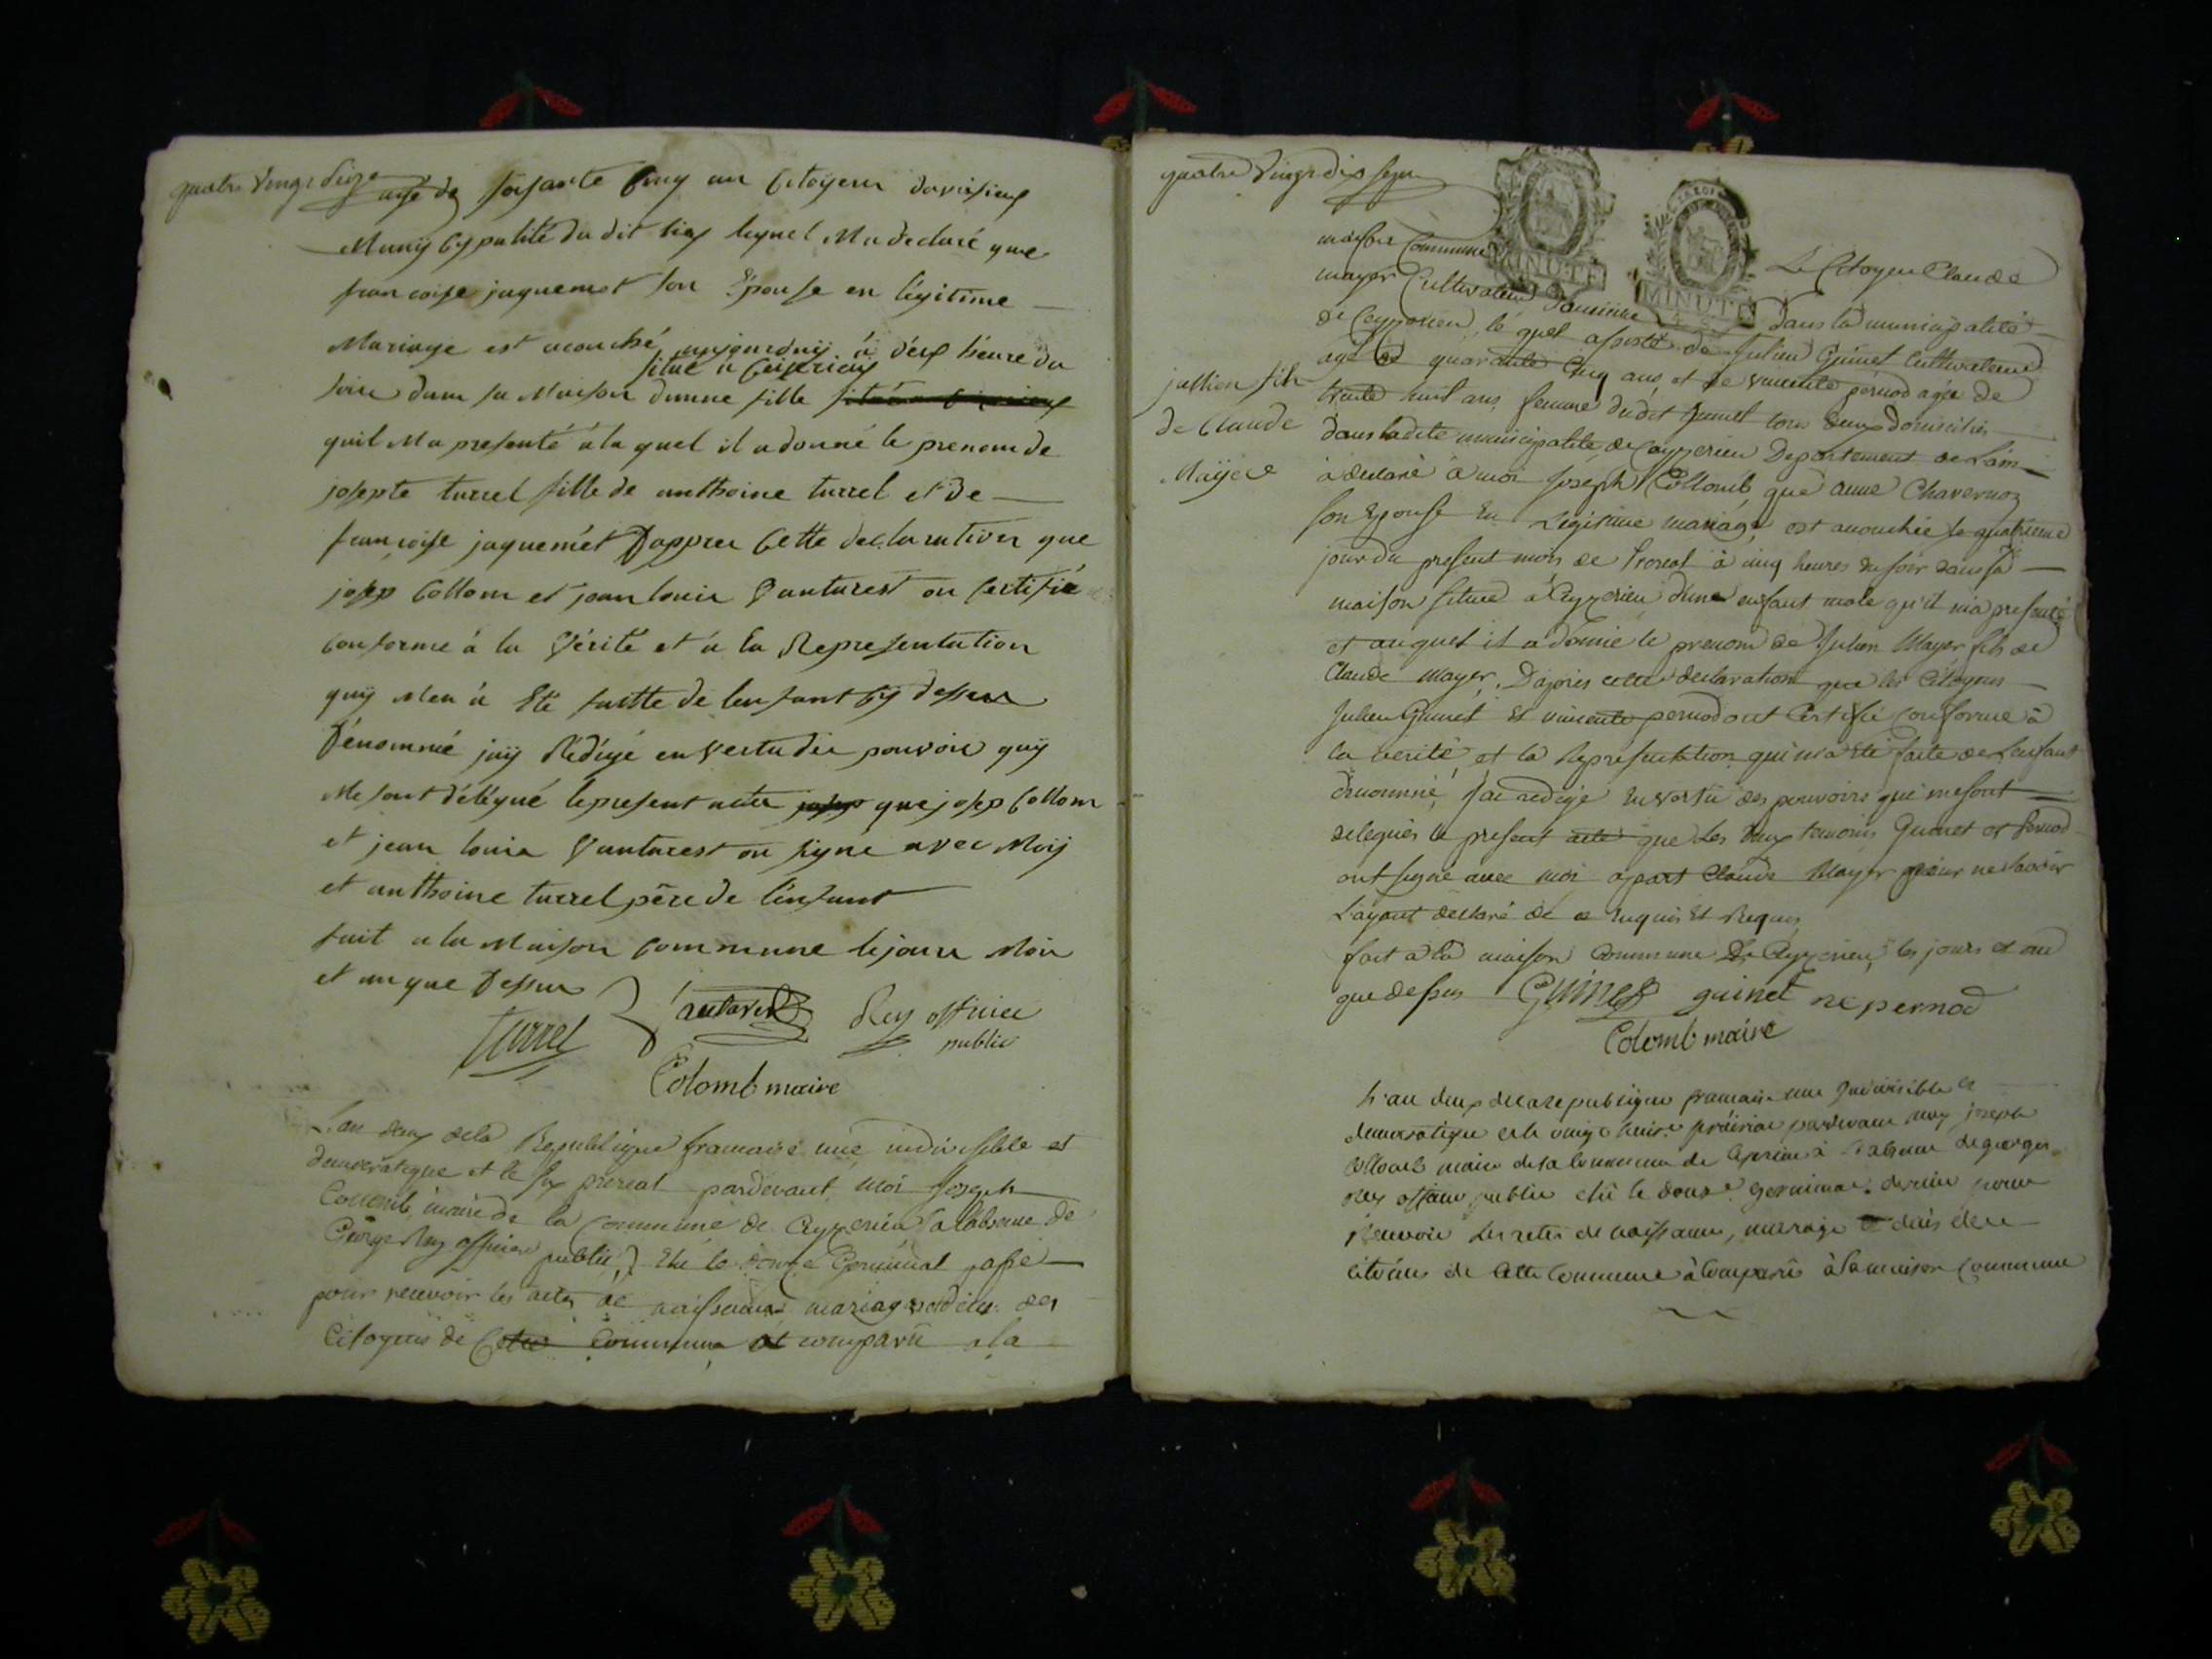 quatre vingt seize
agé de soisante cinq an citoÿein
Munÿ cypalité du dit lieu lequel Ma declaré que
francoise jaquemet son Epouse en légitime
Mariage est acouché aujourduÿ á deux heure du
situé á Ceiserieu
soire dans sa Maison dunne fille
quil Ma presenté á la quel il a donné le prenom de
josepte turrel fille de anthoine turrel et de
francoise jaquemét Dapprer Cette declaration que
josep Collom et jean louis Vautarest on Certifié
conforme á la Vérité et á la Representation
quÿ Men á Eté faitte de lenfant cy dessu
Dénommé jaÿ Rédigé en Vertu die pouvoir quÿ
Me sont délégué le present acte que josep Collom
et jean louis Vautarest on signé avec Moÿ
et anthoine turrel pêre de lénfant
fait a la Maison commune le jour Moi
et an que Dessu
Turrel Vautaret Rey officier
public
Colomb maire
L'an deux de la Republique francaise une indivisible et
democratique et le six prereal pardevant moi Joseph
Collomb maire de la Commune de Ceyzerieu a l'absence de
George Rey officier public Elu le douze Germinal passé
pour recevoir les actes de naissance mariage et décès des
Citoyens de Cette Commune est comparu a la
quatre Vingt dix sept
MINUTE
MINUTE
maison Commune Le Citoyen Claude
mayer Cultivateur Domicilié dans la municipalité
de Ceyzerieu, le quel assisté de Julien Guinet Cultivateur
agé de quarante Cinq ans, et de vincente pernod agée de
trente huit ans, femme du dit Guinet tous deux domiciliés
dans ladite municipalité de Ceyzerieu Departement de L'ain
jullien fils
de Claude
Maÿere
à declaré à moi Joseph Collomb, que anne Chavernoz
son Epouse en Legitime mariage, est acouchée le quatrieme
jour du present mois de Prereal à cinq heures du soir dans sa
maison située à Ceyzerieu d'une enfant male qu'il m'a presenté
et auquel il a donné le prenom de Julien Mayer fils de
Claude Mayer, D'après cette declaration que les Citoyens
Julien Guinet et vincente pernod ont Certifié Conforme à
la verité, et la Representation qui m'a été faite de L'enfant
dénommé, J'ai redigé en vertu des pouvoirs qui me sont
delegués le present acte que Les deux temoins Guinet et Pernod
ont signé avec moi apart Claude Mayer pour ne savoir
L'ayant declaré de ce Enquis Et Requis
fait a la maison Commune De Ceyzerieu, les jours et an
que dessus Guinet guinet ne pernod
Colomb maire
L'an deux de la republique francaise une Indivisible et
democratique et le vingt huit prairial pardevant moy joseph
collomb maire de la commune de Ceyserieu à l'absence de george
rey officier public elu le douze germinal dernier pour
recevoir les actes de naissance, mariage et décès de ce
citoiens de cette Commune à Comparû à la maison Commune